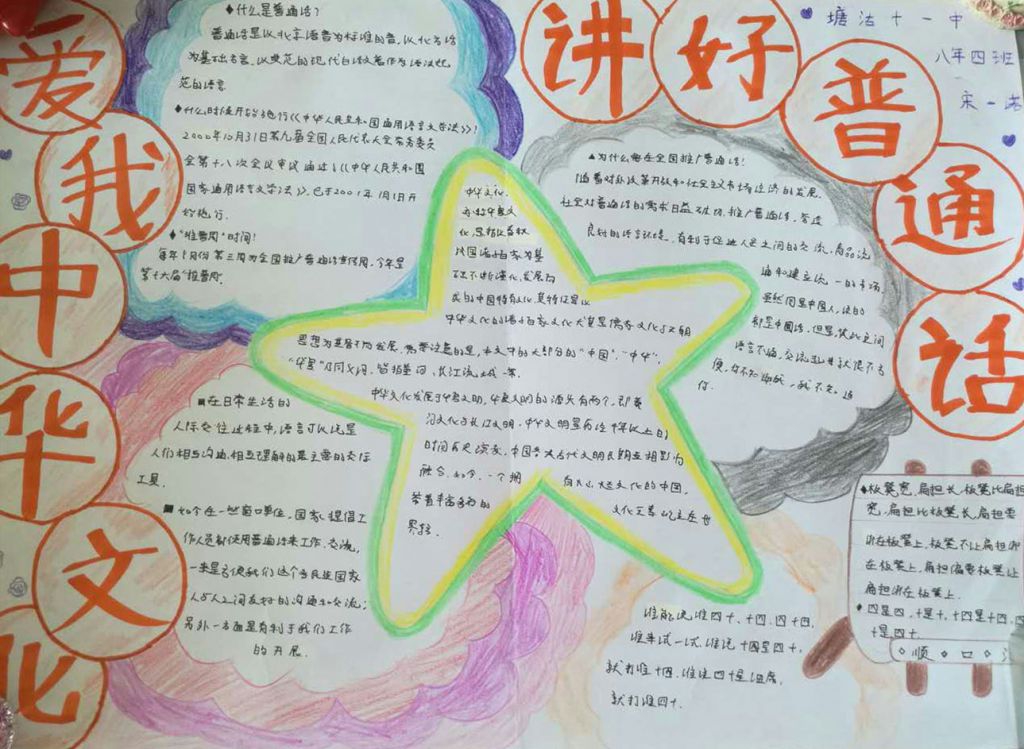 爱我中华文化
讲好普通话
塘沽十一中
八年四班
宋一诺
◆什么是普通话?
普通话是以北京语音为标准的音,以北方话
为基础方言,以典范的现代白话文著作为语法规
范的语言
◆什么时候开始施行《《中华人民共和国通用语言文字法》》!
2000年10月31日第九届全国人民代表大会常务委员
会第十八次会议审议通过《《中华人民共和国
国家通用语言文字法》》,已于2001年1月1日开
始施行.
◆“推普周”时间!
每年9月份第三周为全国推广普通话宣传周.今年是
第十六届“推普周”.
▲为什么要在全国推广普通话!
随着对外改革开放和社会主义市场经济的发展.
社会对普通话的需求日益迫切.推广普通话.营造
良好的语言环境.有利于促进人员之间的交流.商品流
通和建立统一的市场
虽然同是中国人,说的
都是中国话,但是,彼此之间
语言不通,交流起来就很不方
便,
中华文化,
亦叫华夏文
化,
以国诸子百家为基
础不断演化、发展而
成的中国特有文化.其特征是以
中华文化的诸子百家文化尤其是儒家文化
思想为基骨不断发展.需要注意的是,本文中的大部分的“中国”、“中华”、
“华夏”乃同义词.皆指黄河、长江流域一带.
中华文化发展于华夏文明,华夏文明的源头有两个,即黄
河文化与长江文明.中华文明是历经千年以上的
时间历史演变.
融合.如今.一个拥
有
带着丰富多彩的
文化的中国,
文化
世
界
■在日常生活的
人际交往过程中,语言可以说是
人们相互沟通.相互理解的最主要的交际
工具.
■如今在一些窗口单位,国家提倡工
作人员都使用普通话来工作、交流,
一来是方便我们这个多民族国家
人与人之间友好的沟通和交流;
另外一方面是有利于我们工作
的开展.
◆板凳宽,扁担长.板凳比扁担
宽,扁担比板凳长,扁担要
绑在板凳上,板凳不让扁担绑
在板凳上.扁担偏要板凳让
扁担绑在板凳上.
◆四是四,十是十,十四是十四,四
十是四十
◇顺◇口◇
谁能说准四十、十四、四十四,
谁来试一试.谁说十四是四十,
就打谁十四.谁说四十是
就打谁四十.